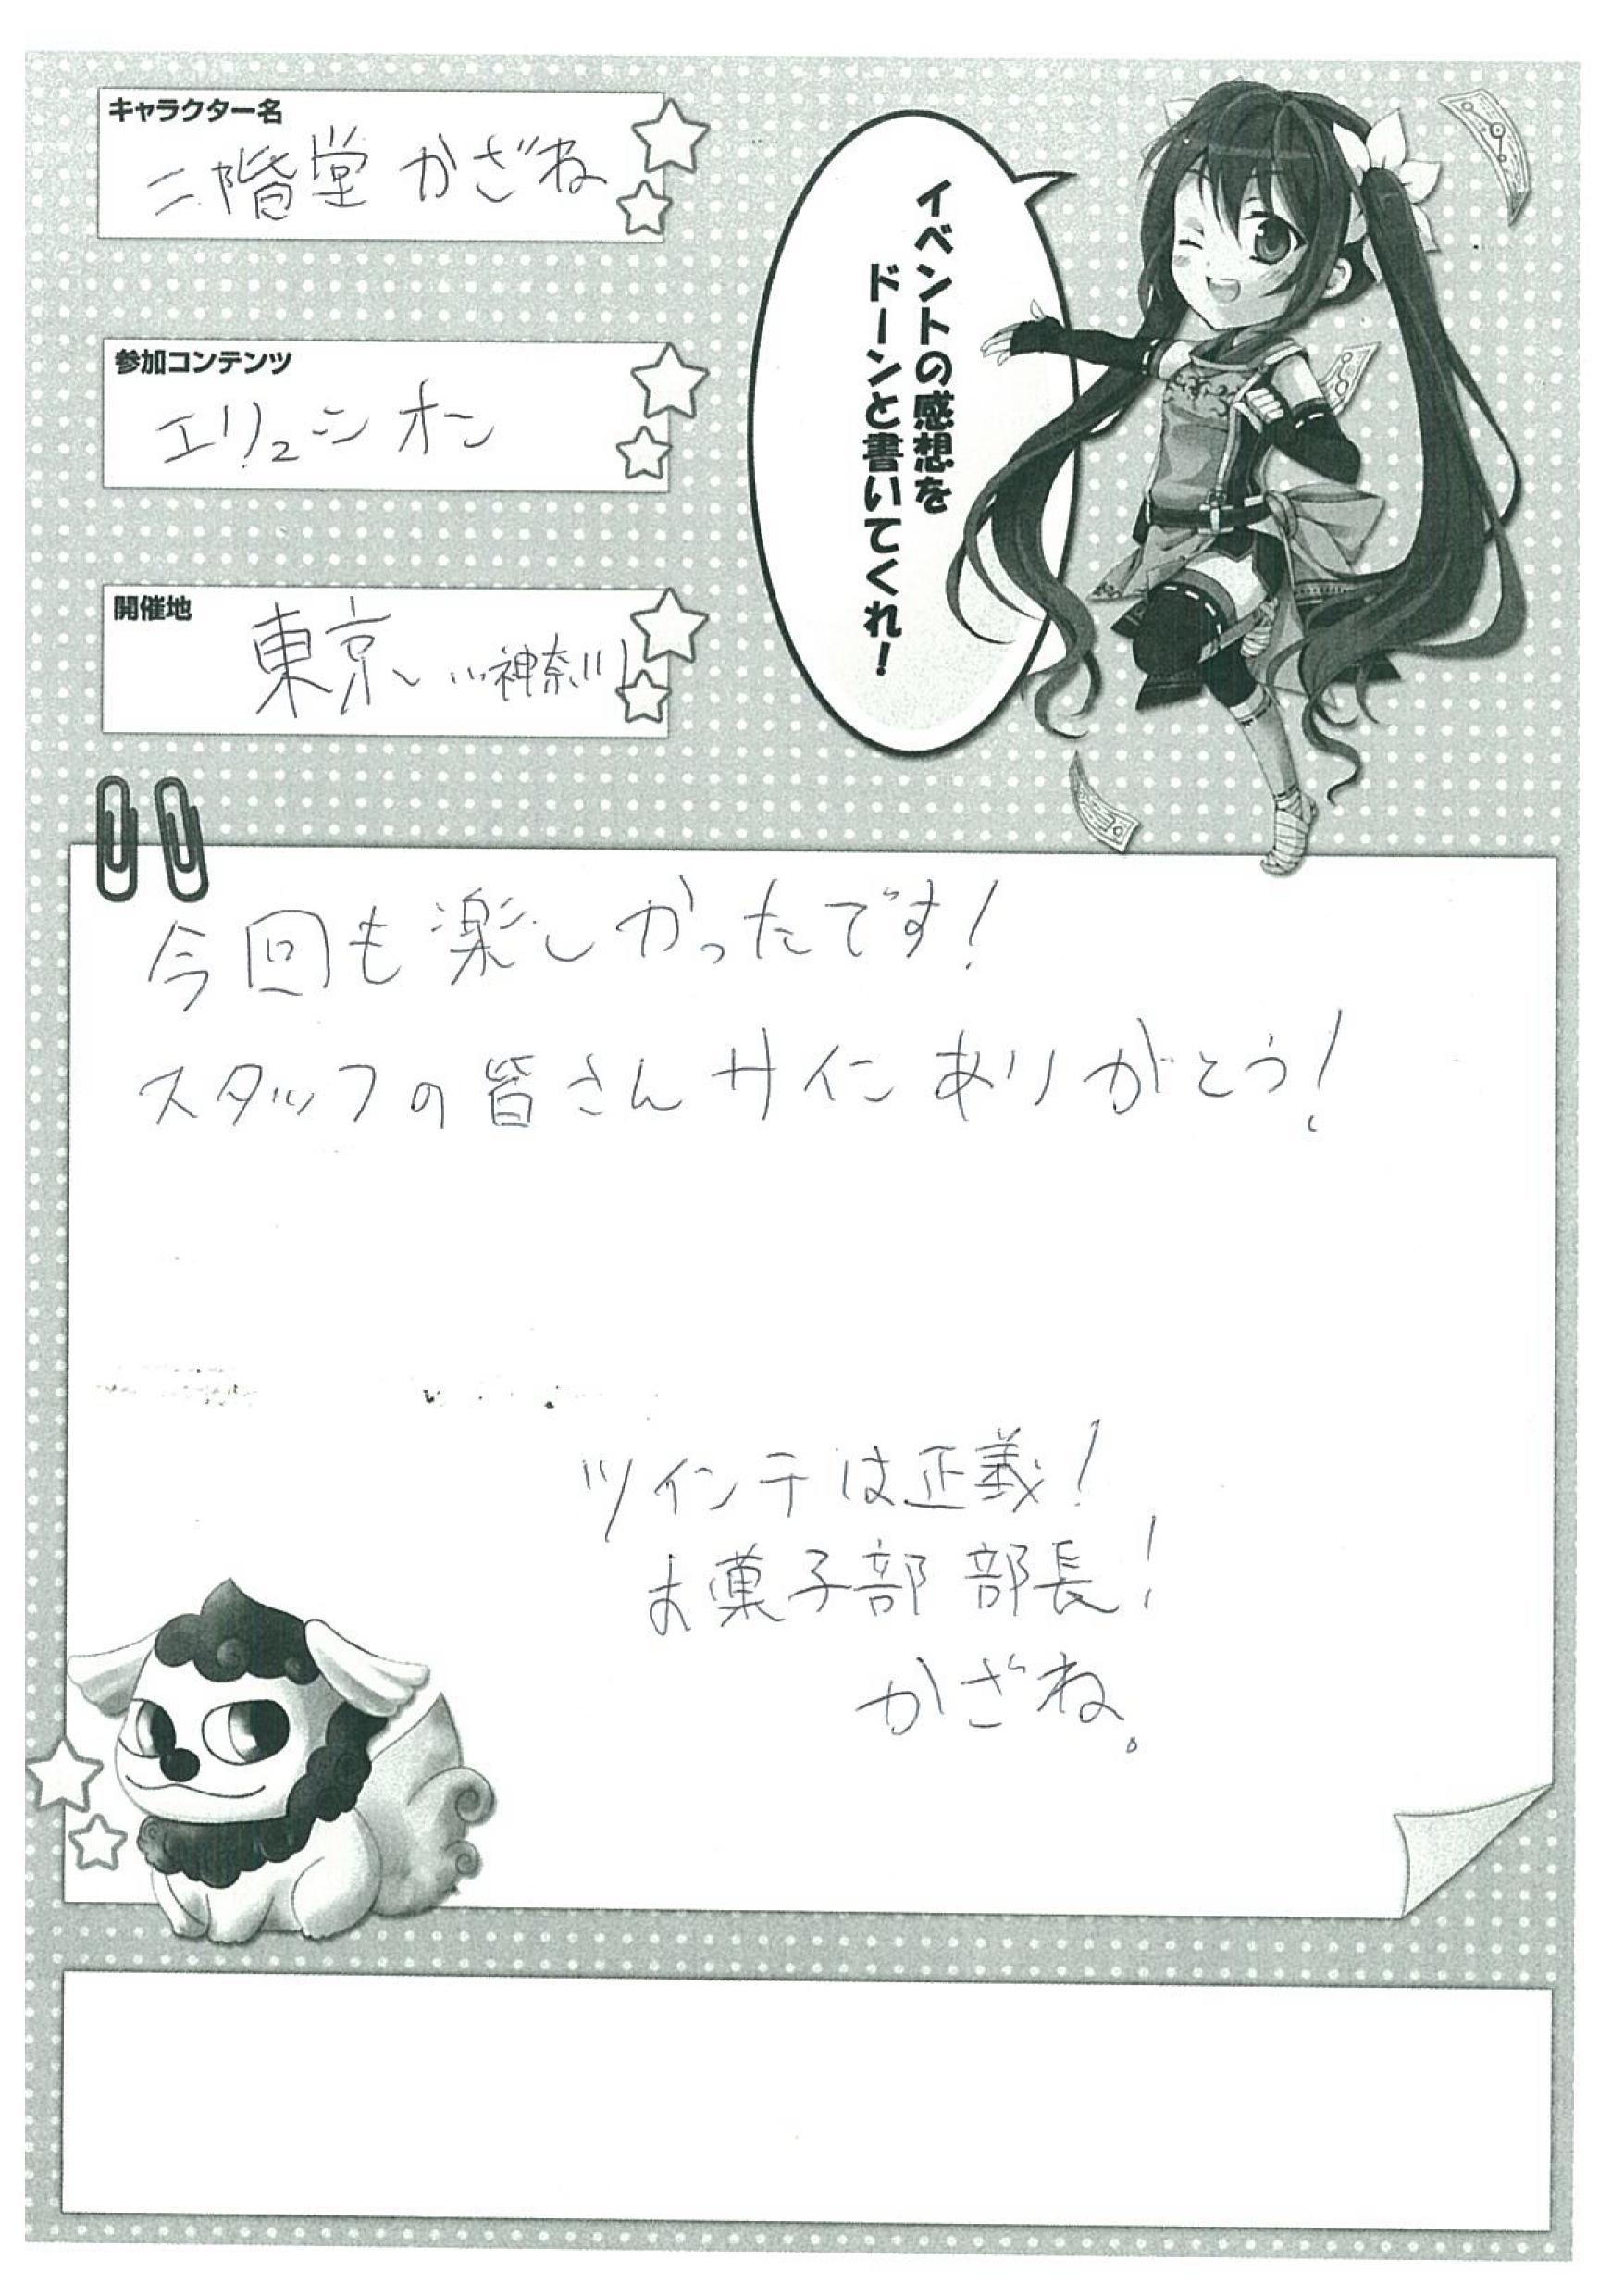 キャラクター名
二階堂 かざね
参加コンテンツ
エリュシオン
開催地
東京 、、、神奈川
イベントの感想を
ドーンと書いてくれ!
今回も楽しかったです!
スタッフの皆さんサインありがとう!
ツインテは正義!
お菓子部 部長!
かざね。